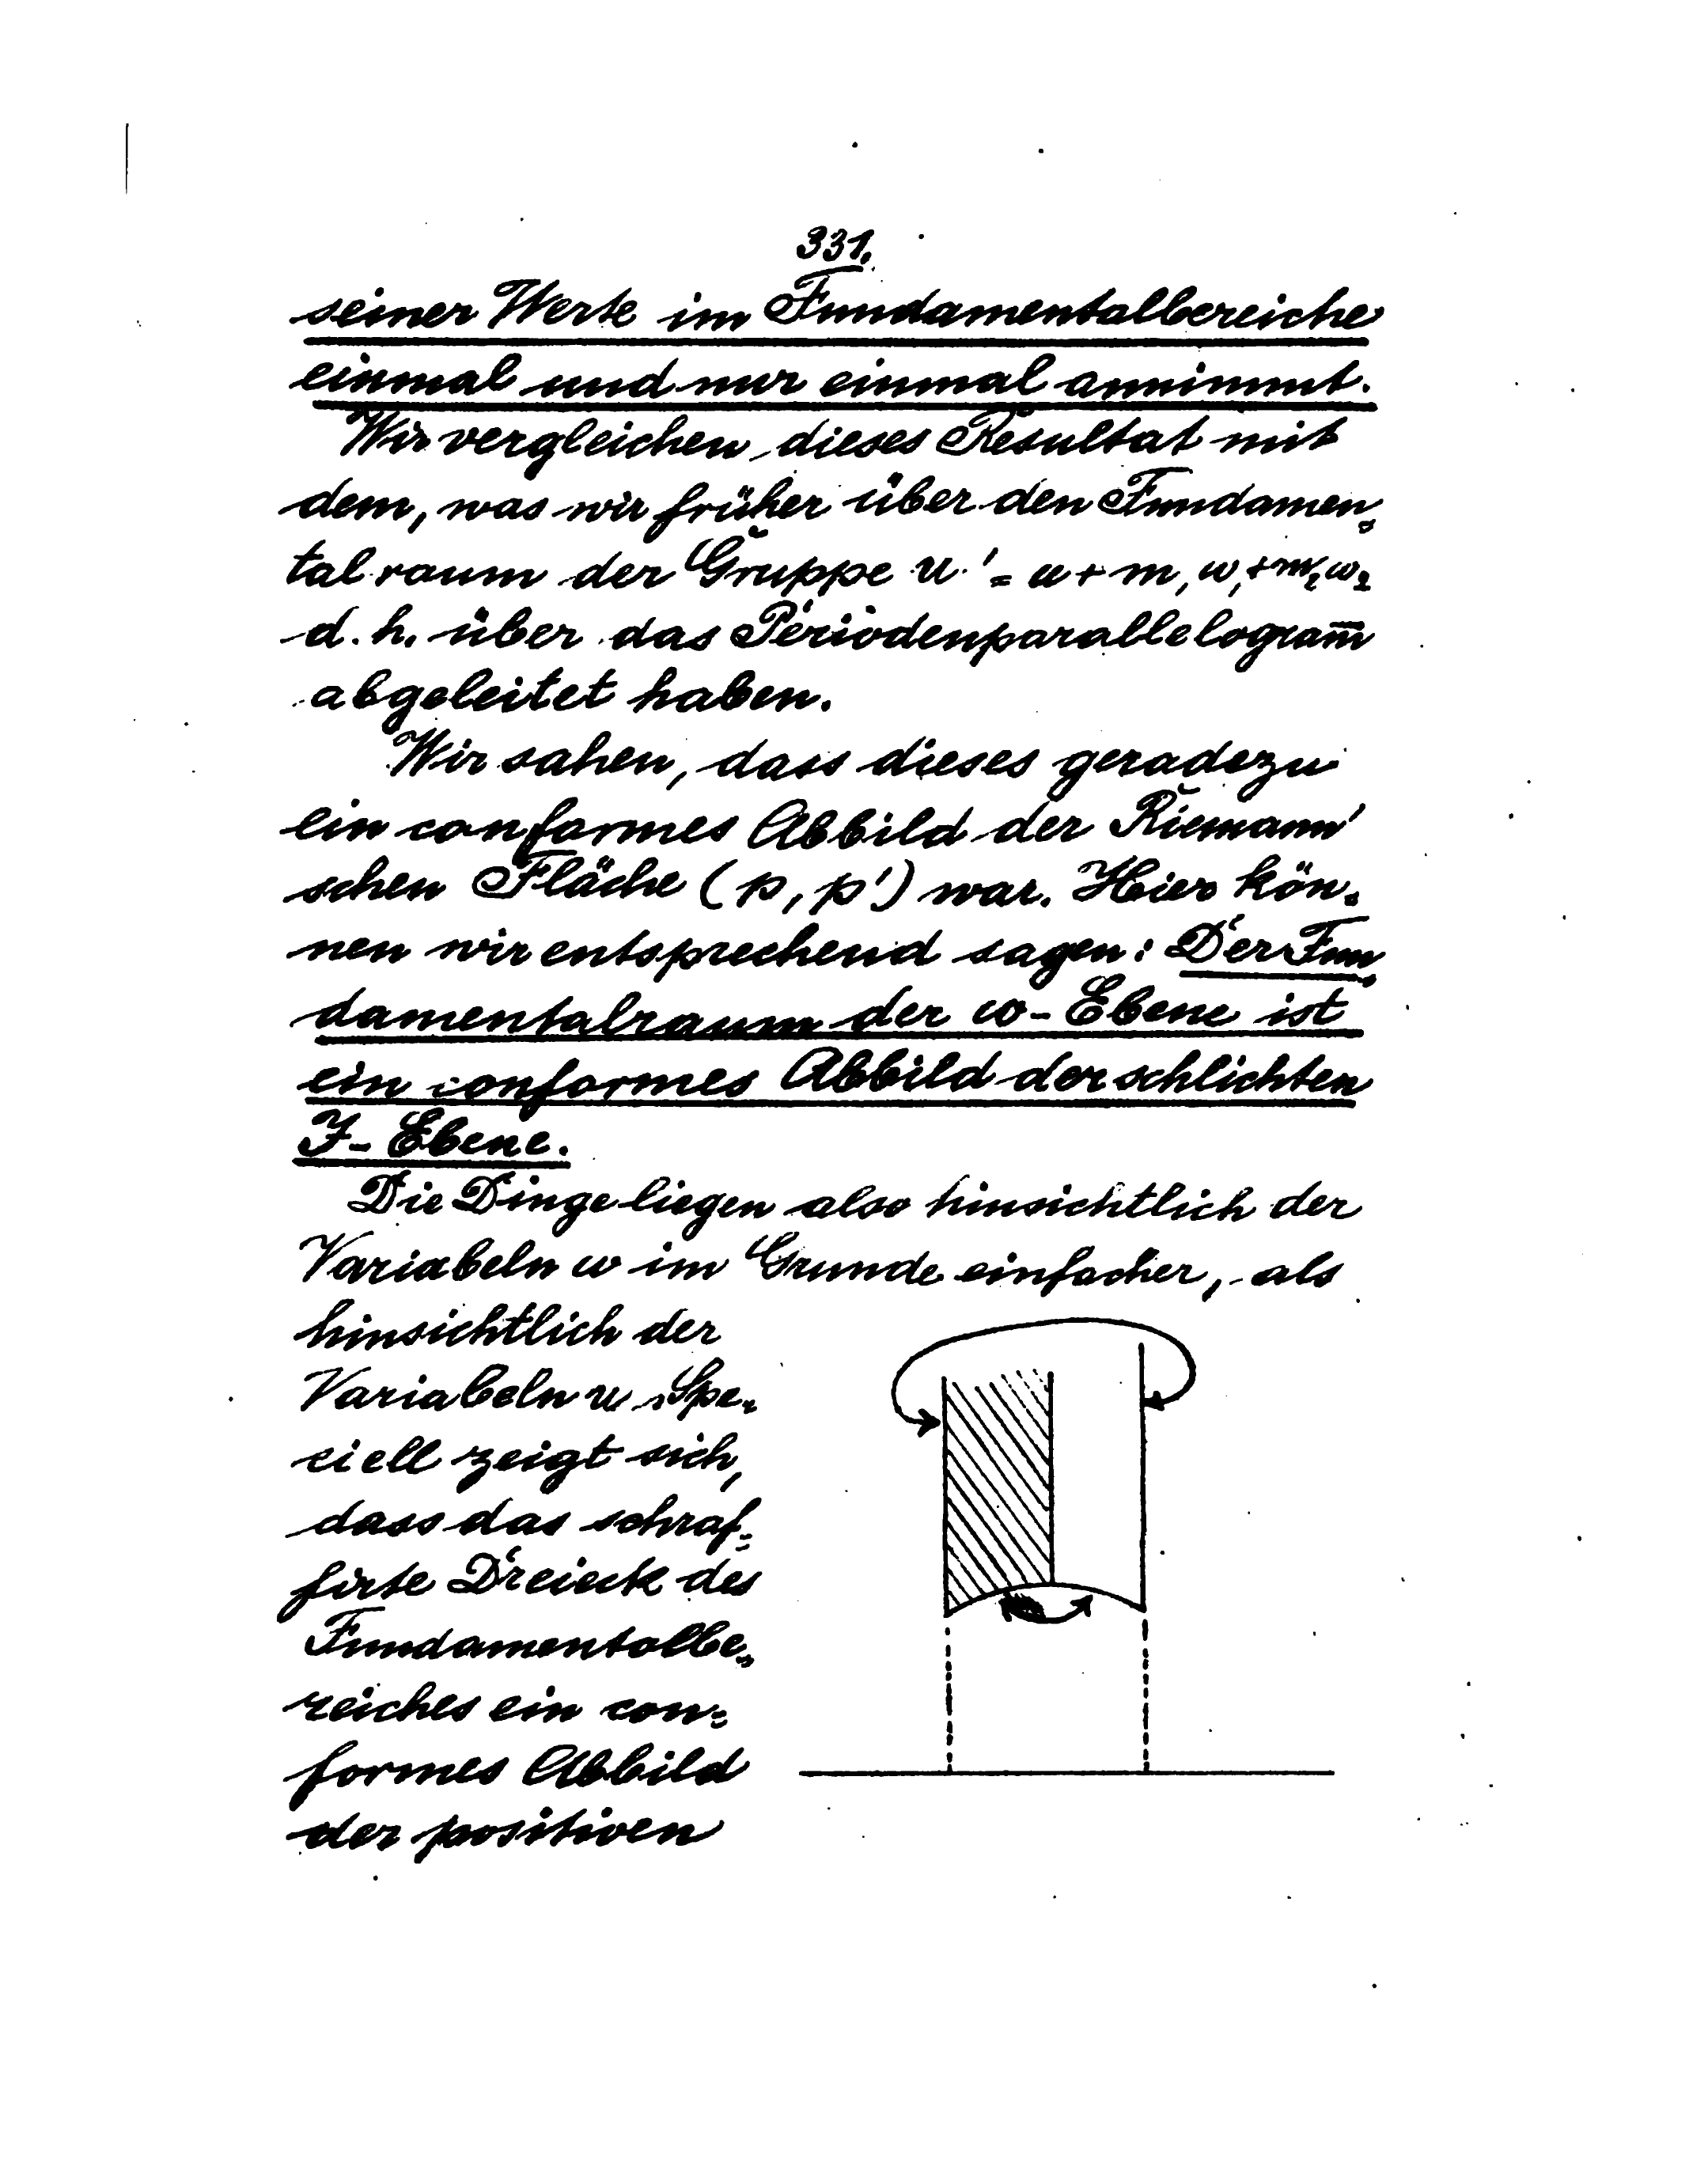 331.
seiner Werte im Fundamentalbereiche
einmal und nur einmal annimmt.
Wir vergleichen dieses Resultat mit
dem, was wir früher über den Fundamen-
talraum der Gruppe u' = u + m₁ω₁ + m₂ω₂
d. h. über das Periodenparallelogram̅
abgeleitet haben.
Wir sahen, dass dieses geradezu
ein conformes Abbild der Riemann'
schen Fläche (p, p') war. Hier kön-
nen wir entsprechend sagen: Der Fun-
damentalraum der ω-Ebene ist
ein conformes Abbild der schlichten
J-Ebene.
Die Dinge liegen also hinsichtlich der
Variabeln ω im Grunde einfacher, als
hinsichtlich der
Variabeln u. Spe-
ciell zeigt sich,
dass das schraf-
firte Dreieck des
Fundamentalbe-
reiches ein con-
formes Abbild
der positiven